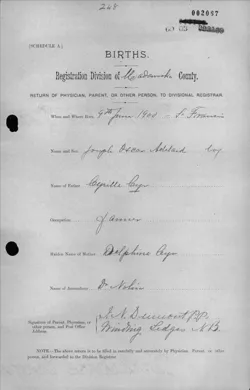 268
002097
(SCHEDULE A.)
BIRTHS.
Registration Division of Madawaska County.
RETURN OF PHYSICIAN, PARENT, OR OTHER PERSON, TO DIVISIONAL REGISTRAR.
When and Where Born, 9th June 1904 St Francis
Name and Sex Joseph Oscar Adelard boy
Name of Father Cyrille Cyr
Occupation farmer
Maiden Name of Mother Delphine Cyr
Name of Accoucheur Dr Nolin
Signature of Parent, Physician, or
other person, and Post Office
Address.
Dumont P.P.
Winding Ledges N.B.
NOTE.—The above return is to be filled in carefully and accurately by Physician, Parent, or other
person, and forwarded to the Division Registrar.